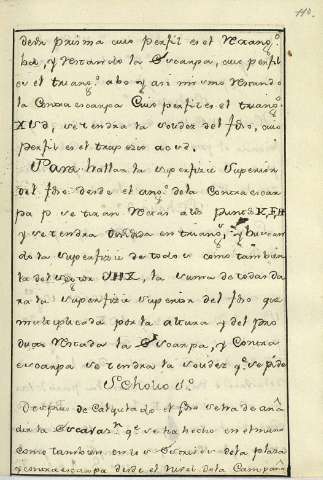 110.
desta prisma cuio perfil es el Rectang.º
bd, y Restando la Escarpa, cuio perfil
es el triang.º abo y asi mismo Restando
la Contra escarpa Cuio perfil es el triang.º
XVd, se tendra la solidez del foso, cuio
perfil es el trapezio acud.
Para hallar la superfizie superior
del foso desde el ang.º de la Contra escar
pa p se tiran Rectas a los puntos
y se tendra dividida en triang.ˢ, y buscan
do la superfizie de todos como tambien
la del sector, la suma de todas da
ra la superfizie superior del foso que
multiplicada por la altura y del pro
ducto Restada la Escarpa, y Contra
escarpa se tendra la solidez q.ᵉ se pide
Scholio
Despues de Calculado el foso se ha de aña
dir la q.ᵉ se ha hecho en el
como tambien en los de la plaza
y contra escarpa desde el nivel de la Campaña